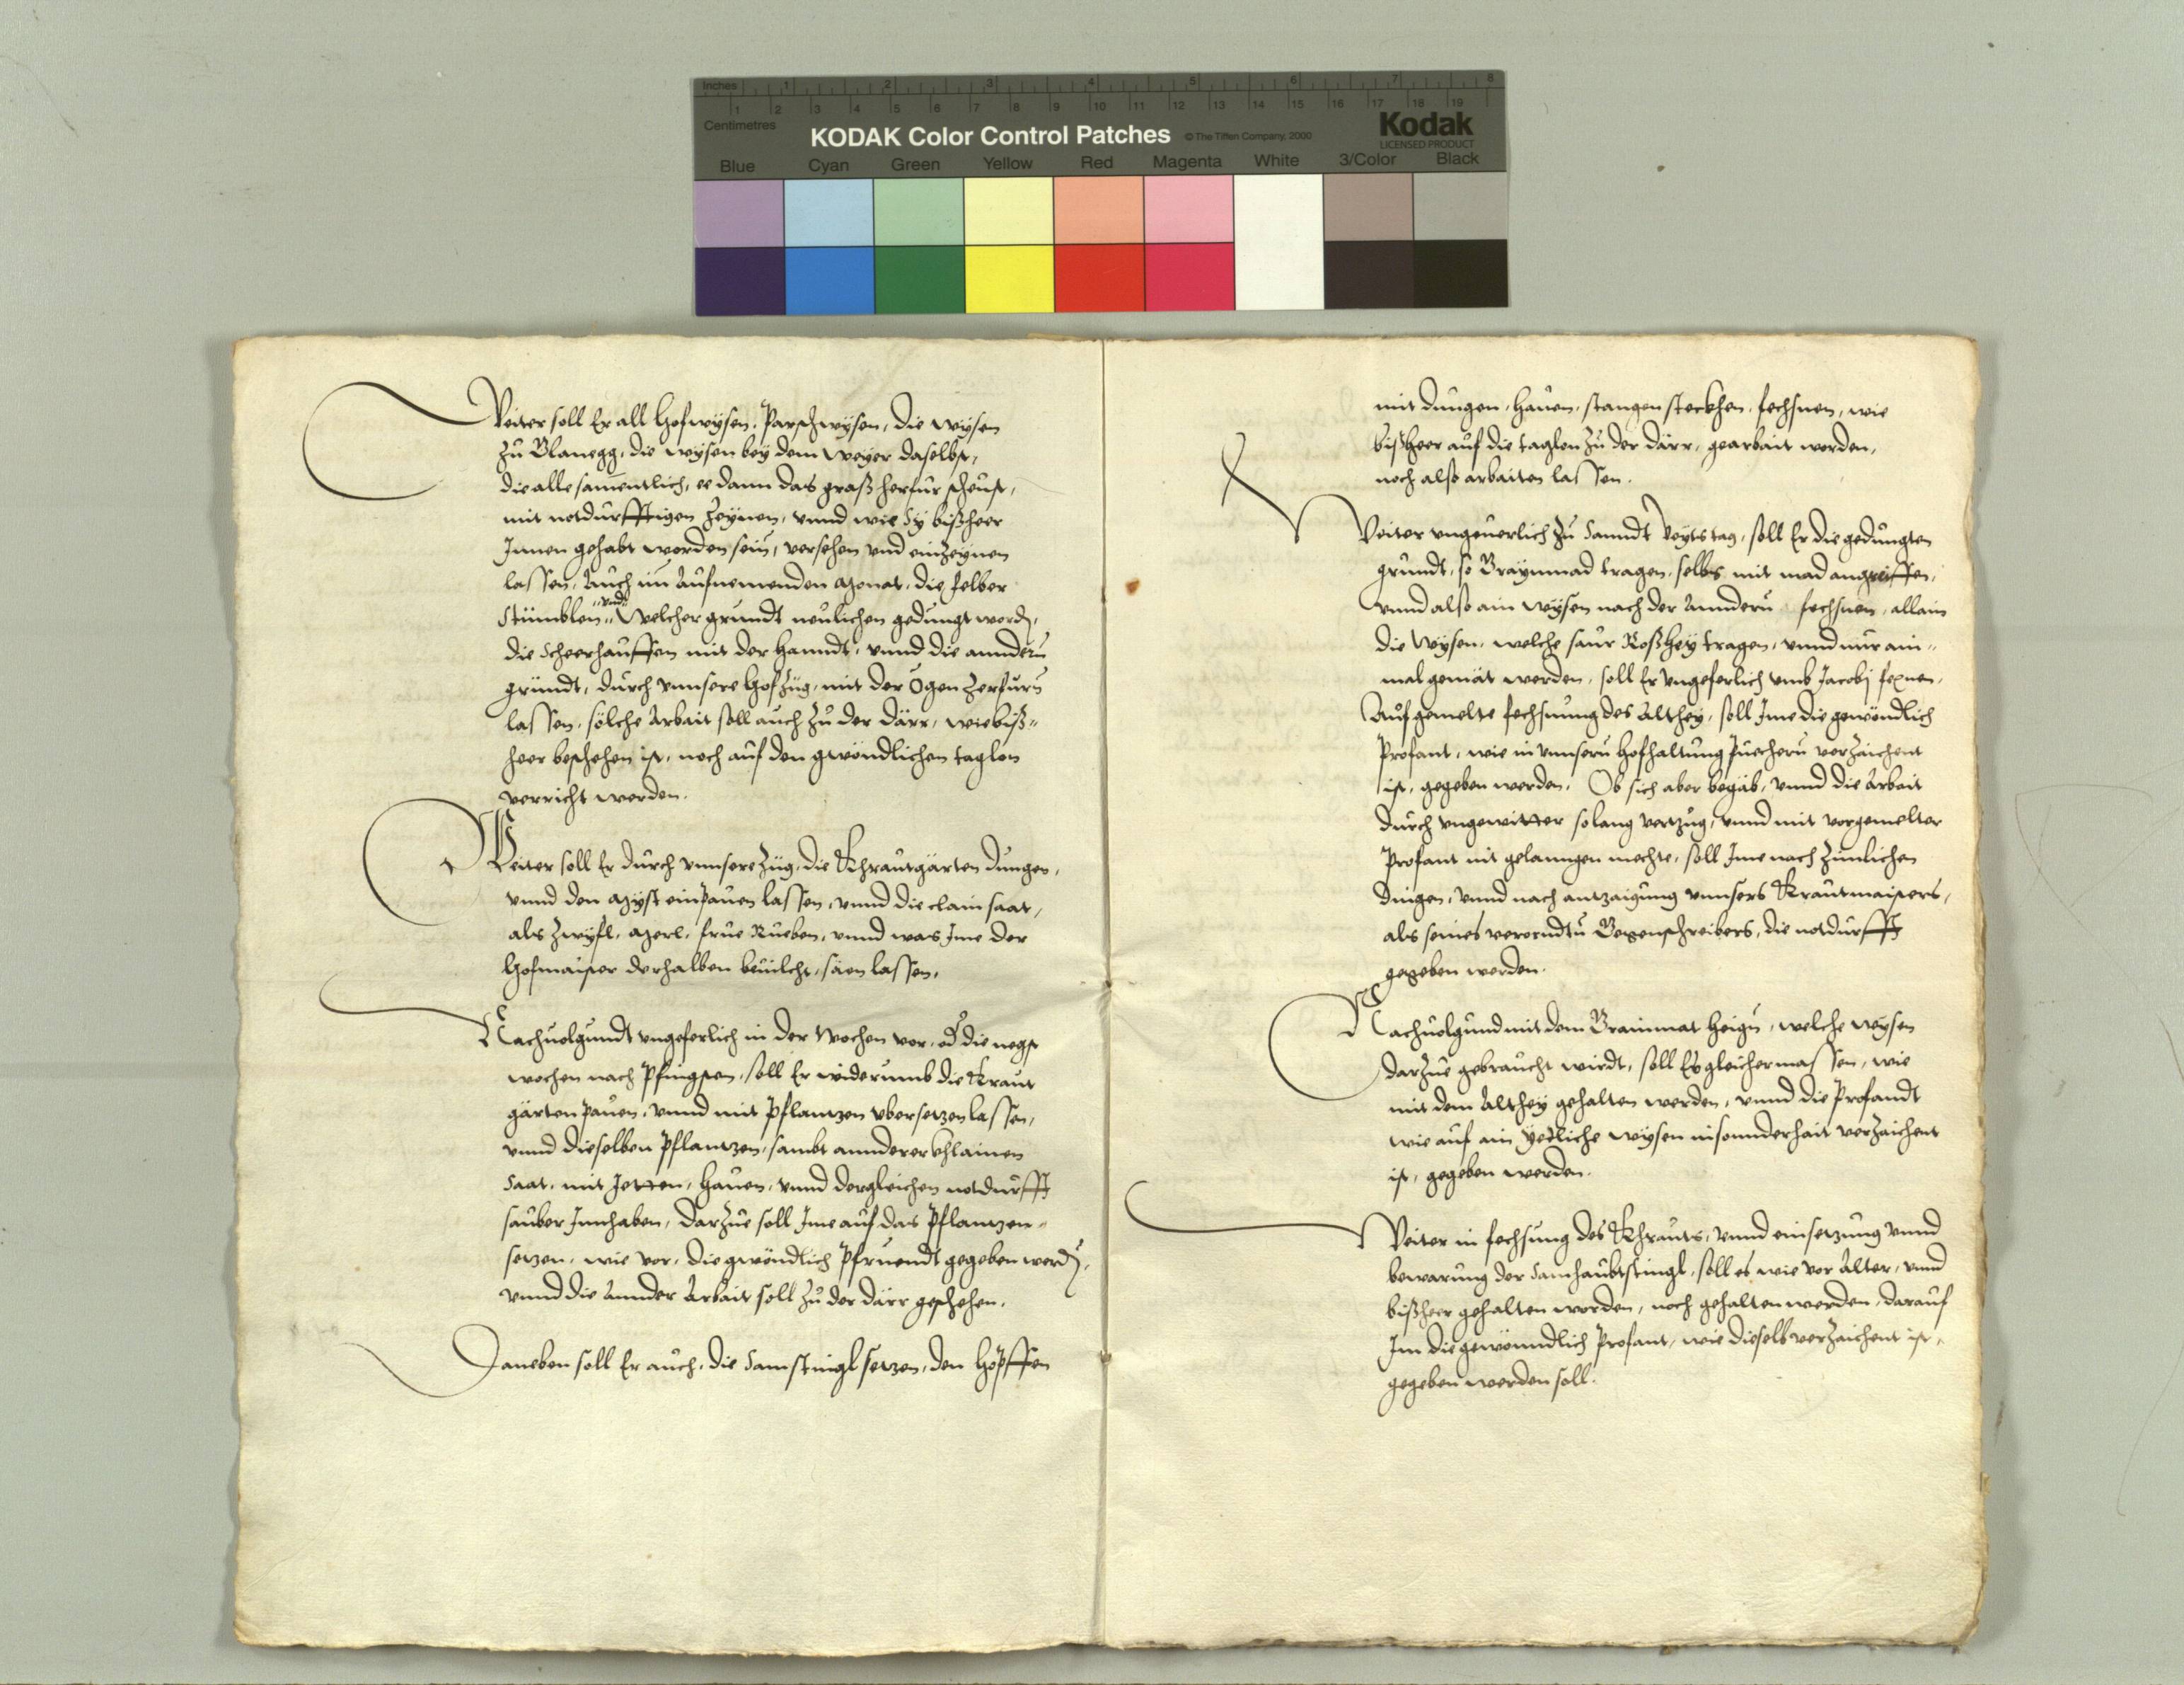 Inches 1 2 3 4 5 6 7 8
1 2 3 4 5 6 7 8 9 10 11 12 13 14 15 16 17 18 19
Centimetres
KODAK Color Control Patches © The Tiffen Company, 2000 Kodak
LICENSED PRODUCT
Blue Cyan Green Yellow Red Magenta White 3/Color Black
Weiter soll Er all Hofwysen, Parschwysen, die wysen
zu Blanegg, die wysen bey dem Weyer daselbst,
die alle samentlich, ee dann das graß herfür scheust,
mit notdurfftigen Zeynen, vnnd wie Sy bißheer
Innen gehabt worden sein, versehen vnd einzeynen
lassen, Auch im Aufnemenden Monat, die felber
Stümblen, vnd Welcher grundt neulichen gedungt word,
die Scheerhauffen mit der Hanndt, vnnd die anndern
gründt, durch vnnsere Hofzüg, mit der Ögen zerfüren
lassen, sölche Arbait soll auch zu der därr, wie biß-
heer beschehen ist, noch auf den gwöndlichen taglon
verricht werden.
Weiter soll Er durch vnnsere Züg, die Khrautgärten dungen,
vnnd den Myst einpauen lassen, vnnd die clain saat,
als Zwyfl, Merl, frue Rueben, vnnd was Ime der
Hofmaister derhalben beuilcht, säen lassen,
Nachuolgundt vngeferlich in der Wochen vor, od die negst
wochen nach Pfingsten, soll Er widerumb die Kraut
gärten pauen, vnnd mit Pflantzen vbersetzen lassen,
vnnd dieselben Pflantzen, sambt annderer khlainen
Saat, mit Jetten, Hauen, vnnd dergleichen notdurfft
sauber Innhaben, Darzue soll Ime auf das Pflantzen-
setzen, wie vor, die gwöndlich Pfruendt gegeben werd,
vnnd die Annder Arbait soll zu der därr geschehen.
Daneben soll Er auch, die Samstingl setzen, den Höpffen
mit dungen, Hauen, stangen steckhen, fechsnen, wie
bißheer auf die taglon zu der därr, gearbait worden,
noch also arbaiten lassen.
Weiter vngeuerlich zu Sanndt Veytstag, soll Er die gedungten
gründt, so Braynmad tragen, selbs mit mad angreiffen,
vnnd also ain wysen nach der Anndern fechsnen, allain
die Wysen, welche saur Roßhey tragen, vnnd nur ain-
mal gemät werden, soll Er vngeferlich vmb Jacobj fexnen,
Auf gemelte fechsnung des Althey, soll Ime die gewöndlich
Profant, wie in vnnsern Hofhaltung Puechern verzaichent
ist, gegeben werden, Ob sich aber begäb, vnnd die Arbait
durch vngewitter solang vertzug, vnnd mit vorgemelter
Profant nit gelanngen mechte, soll Ime nach zimlichen
dingen, vnnd nach antzaigung vnnsers Krautmaisters,
als seines verorndtn Gegenschreibers, die notdurfft
gegeben werden.
Nachuolgund mit dem Brainmat heign, welche wysen
darzue gebraucht wirdt, soll Es gleichermassen, wie
mit dem Althey gehalten werden, vnnd die Profandt
wie auf ain yetliche wysen insonnderhait verzaichent
ist, gegeben werden.
Weiter in fechsung des Khrauts, vnnd einsetzung vnnd
bewarung der Samhaubtstingl, soll es wie vor Alter, vnnd
bißheer gehalten worden, noch gehalten werden, darauf
Im die gewönndlich Profant, wie dieselb verzaichent ist,
gegeben werden soll.